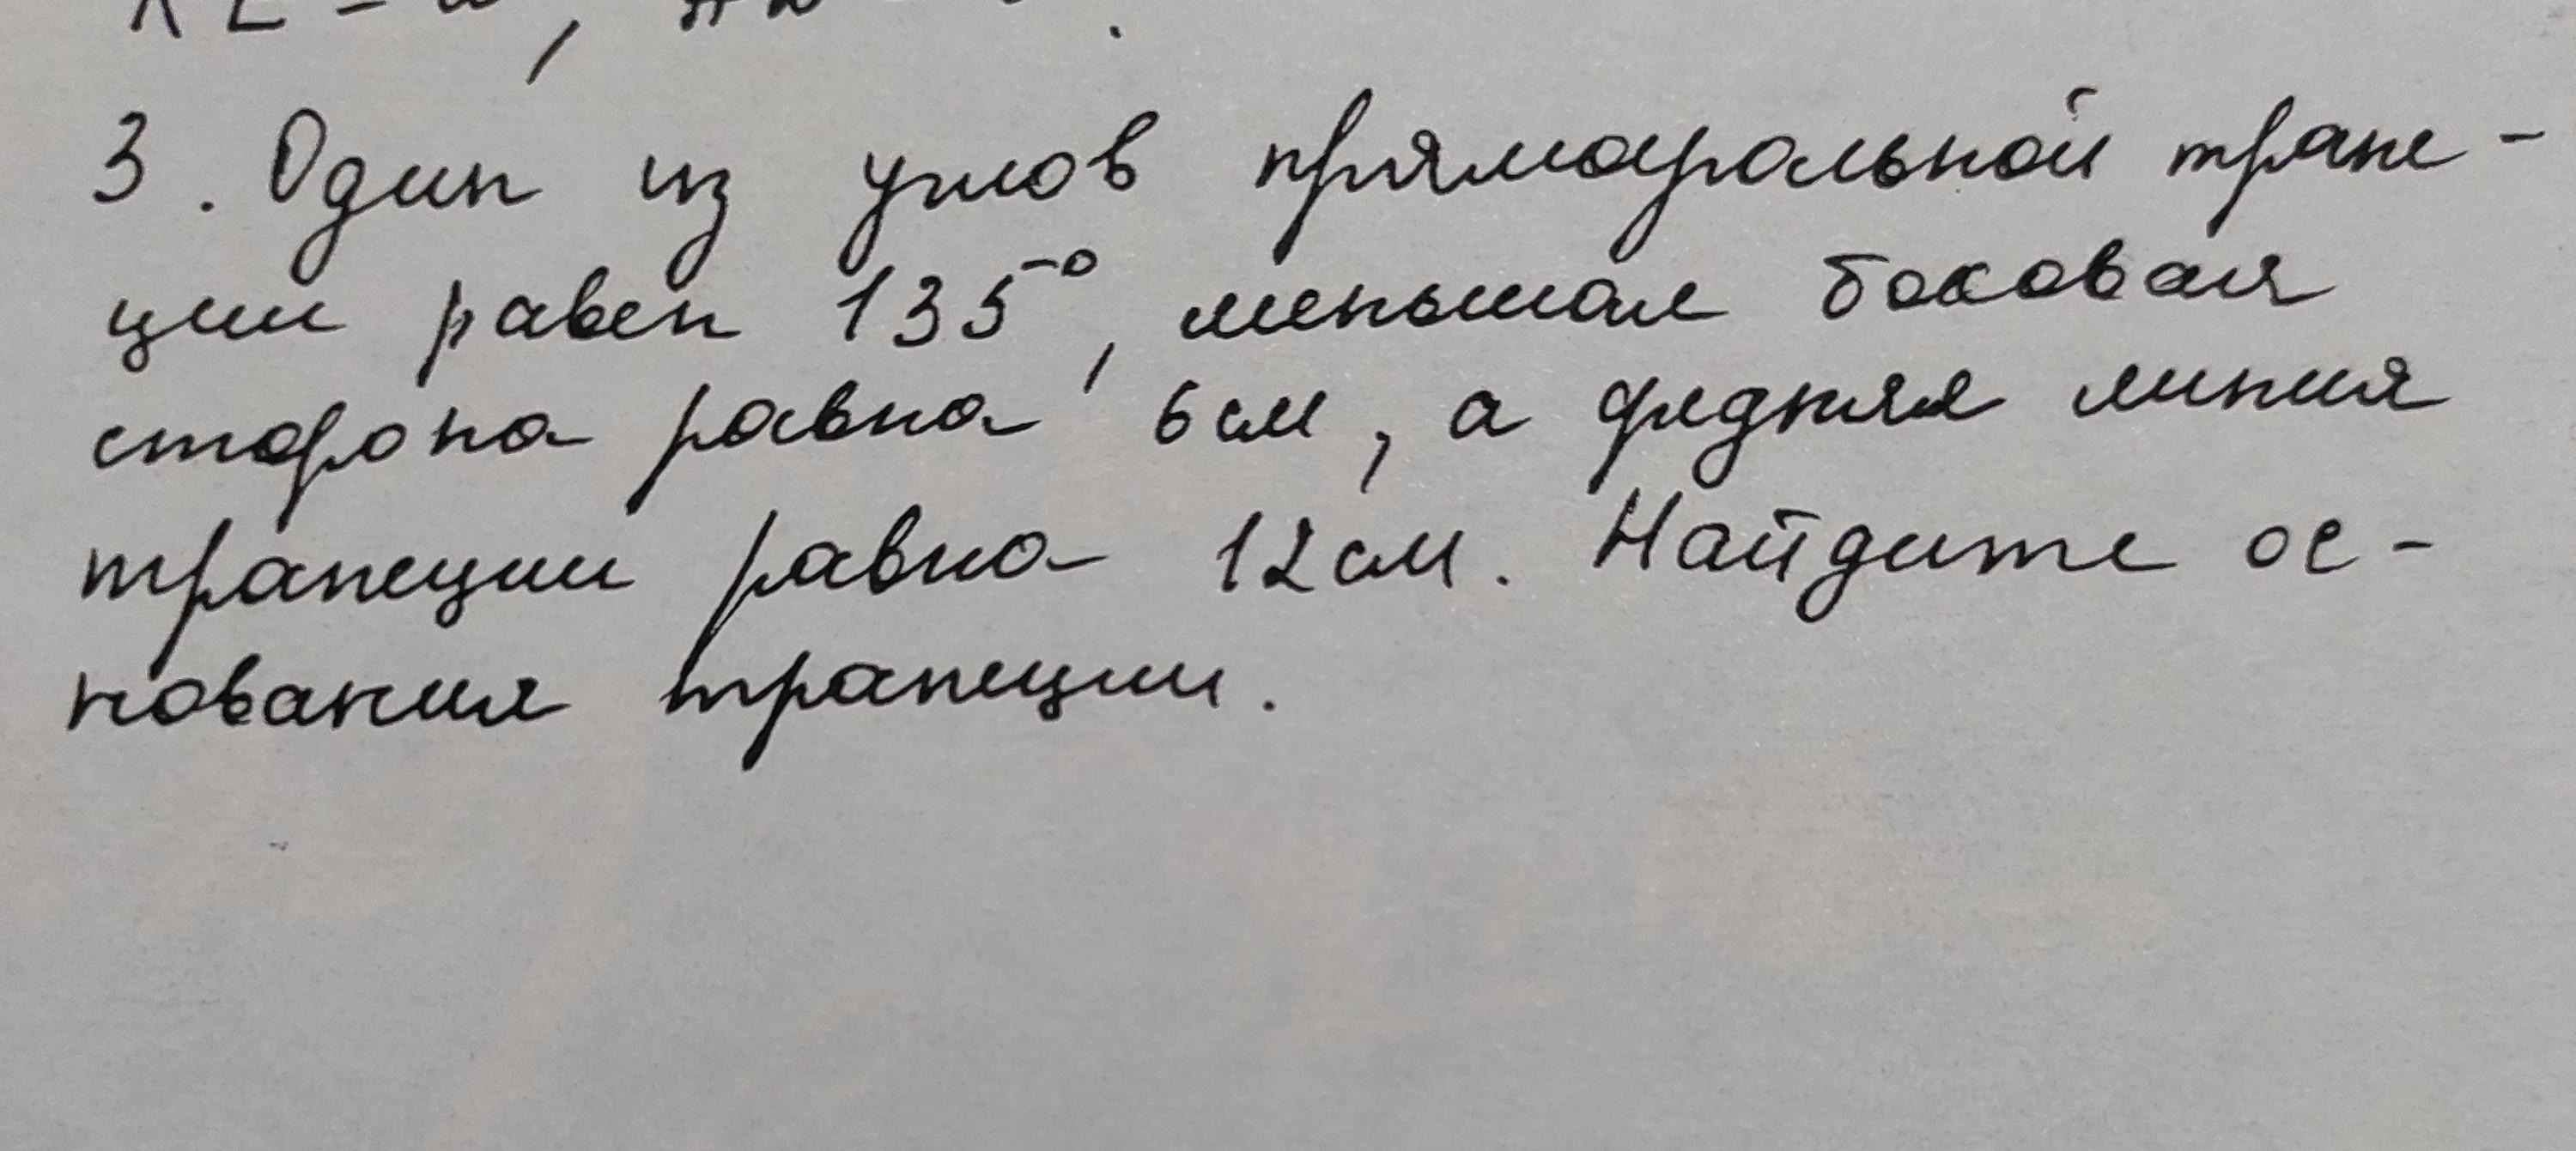 3. Один из углов прямоугольной трапе-
ции равен 135°, меньшая боковая
сторона равна 6 см, а средняя линия
трапеции равна 12 см. Найдите ос-
нования трапеции.